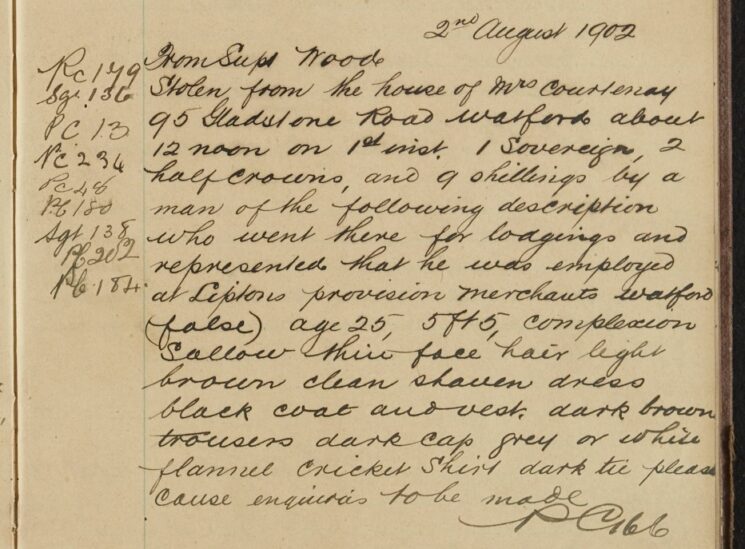 2nd August 1902
Pc 179
Sgt. 136
PC 13
Pc 234
Pc 48
Pc 180
Sgt 138
Pc 202
Pc 184.
From Supt Woods
Stolen from the house of Mrs Courtenay
95 Gladstone Road Watford about
12 noon on 1st inst. 1 Sovereign, 2
half crowns, and 9 shillings by a
man of the following description
who went there for lodgings and
represented that he was employed
at Liptons provision merchants Watford
(false) age 25, 5ft 5, complexion
Sallow thin face hair light
brown clean shaven dress
black coat and vest. dark brown
trousers dark cap grey or white
flannel cricket Shirt dark tie please
cause enquiries to be made